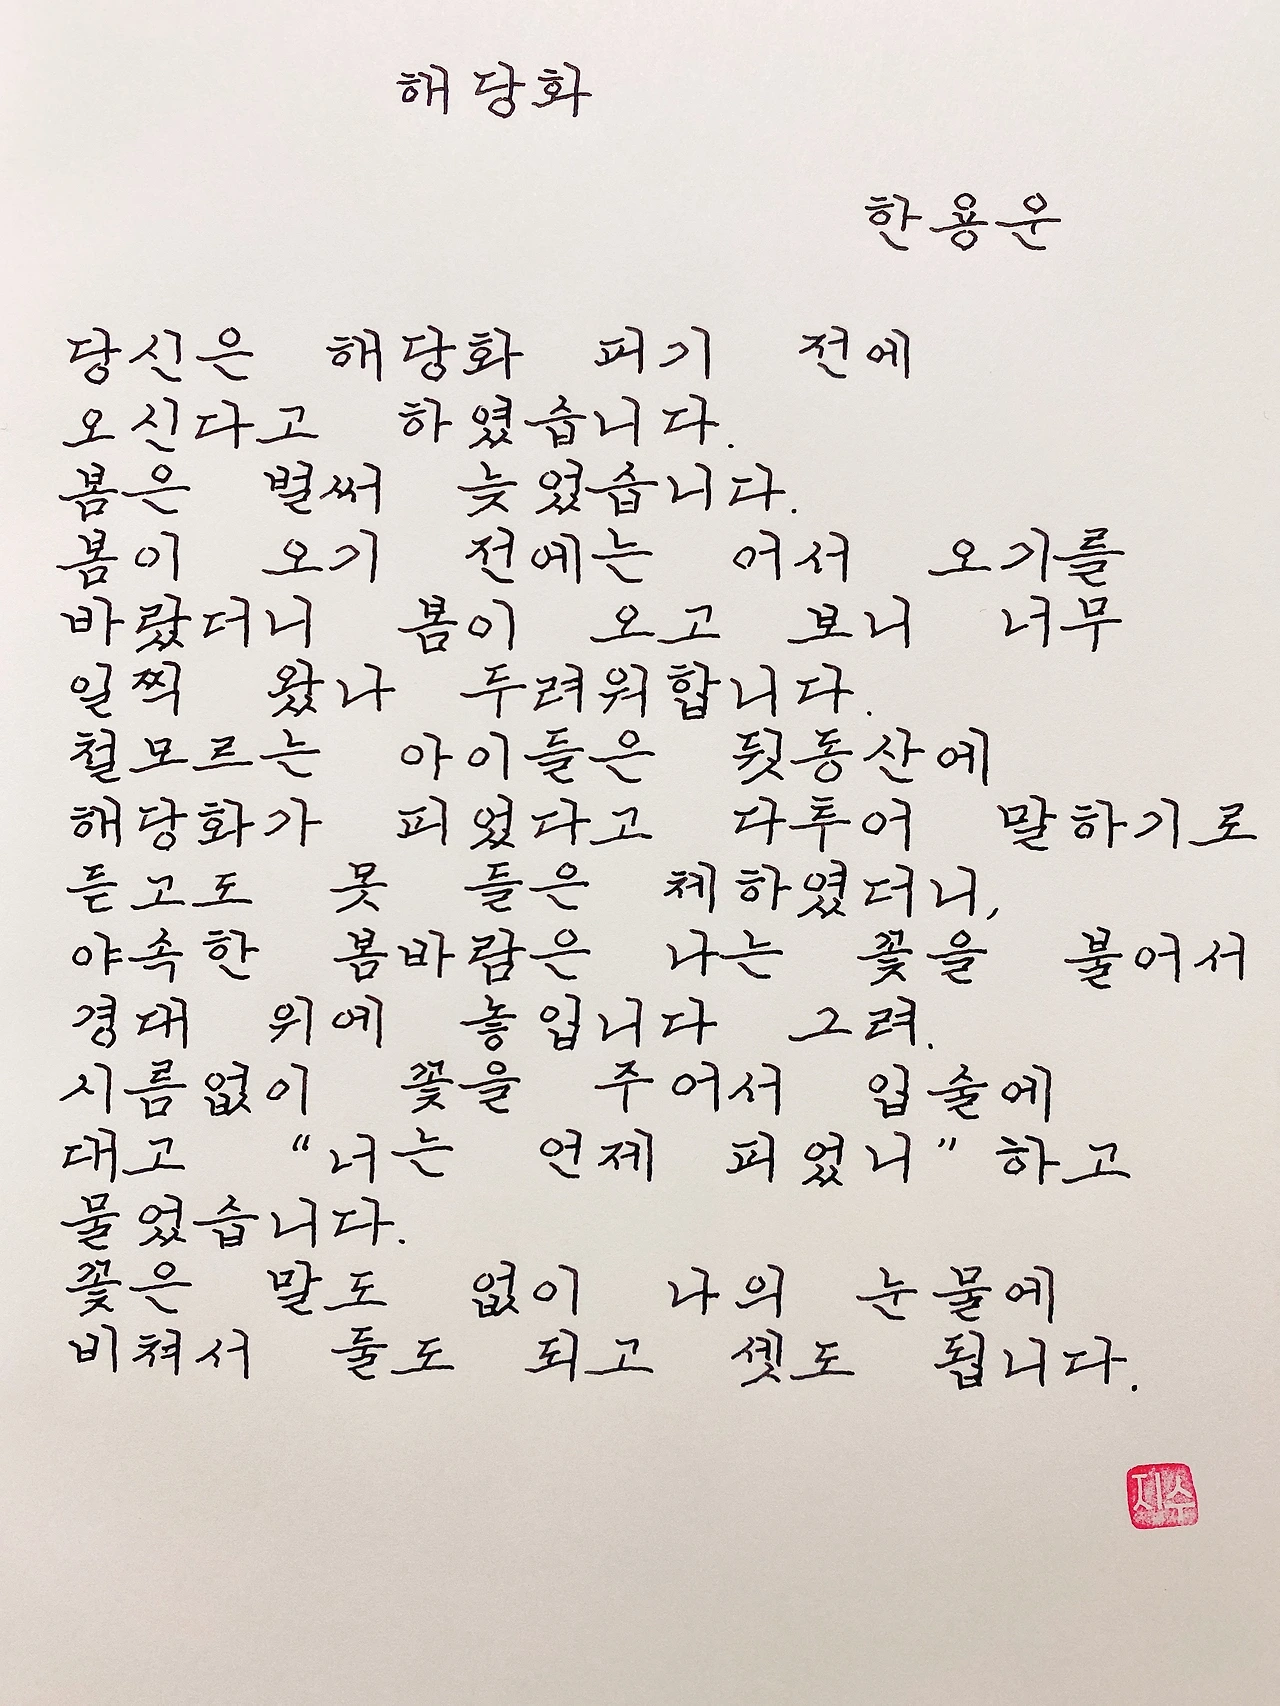 해당화
한용운
당신은 해당화 피기 전에
오신다고 하였습니다.
봄은 벌써 늦었습니다.
봄이 오기 전에는 어서 오기를
바랐더니 봄이 오고 보니 너무
일찍 왔나 두려워합니다.
철모르는 아이들은 뒷동산에
해당화가 피었다고 다투어 말하기로
듣고도 못 들은 체하였더니,
야속한 봄바람은 나는 꽃을 불어서
경대 위에 놓입니다 그려.
시름없이 꽃을 주어서 입술에
대고 “너는 언제 피었니” 하고
물었습니다.
꽃은 말도 없이 나의 눈물에
비쳐서 둘도 되고 셋도 됩니다.
지수